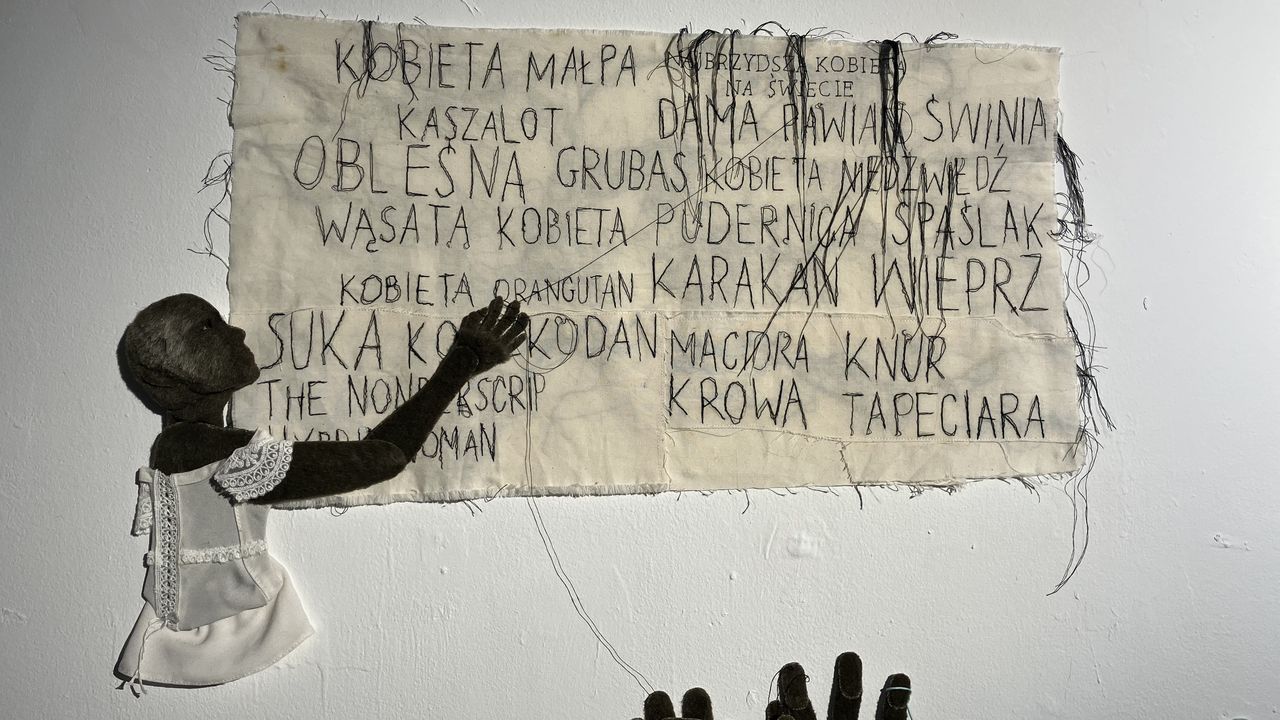 KOBIETA MAŁPA
NAJBRZYDSZA KOBIETA
NA ŚWIECIE
KASZALOT DAMA PAWIAN ŚWINIA
OBLEŚNA GRUBAS KOBIETA NIEDŹWIEDŹ
WĄSATA KOBIETA PUDERNICA SPAŚLAK
KOBIETA ORANGUTAN KARAKAN WIEPRZ
SUKA KODAN MACIORA KNUR
THE KROWA TAPECIARA